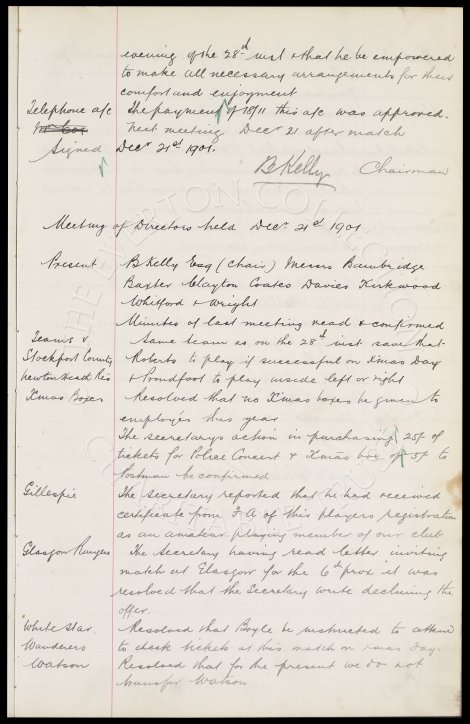 evening of the 28th inst & that he be empowered
to make all necessary arrangements for their
comfort and enjoyment
Telephone a/c The payment of 18/11 this a/c was approved.
Next meeting Decr 21 after match
Signed Decr 21st 1901.
B Kelly Chairman
Meeting of Directors held Decr 21st 1901
Present B Kelly Esq (Chair) Messrs Bainbridge
Baxter Clayton Coates Davies Kirkwood
Whitford & Wright
Minutes of last meeting read & confirmed
Teams v Same team as on the 28th inst save that
Stockport County Roberts to play if successful on Xmas Day
Newton Heath Res & Proudfoot to play inside left or right
Xmas Boxes Resolved that no Xmas boxes be given to
employés this year
The secretarys action in purchasing 25/- of
tickets for Police Concert & Xmas box of 5/- to
Postman be confirmed
Gillespie The Secretary reported that he had received
certificate from F A of this players registration
as an amateur playing member of our club
Glasgow Rangers The Secretary having read letter inviting
match at Glasgow for the 6th prox it was
resolved that the Secretary write declining the
offer.
White Star Resolved that Boyle be instructed to attend
Wanderers to check tickets at this match on Xmas day.
Watson Resolved that for the present we do not
transfer Watson
THE EVERTON COLLECTION